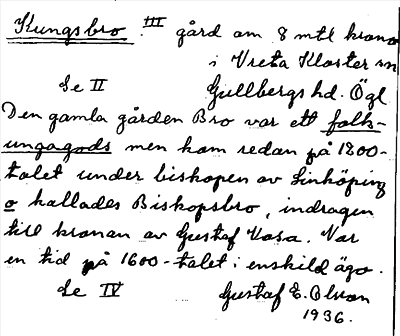 Kungsbro. III gård om 8 mtl krono
i Vreta Kloster sn
Se II Gullbergs hd. Ögl
Den gamla gården Bro var ett folk-
ungagods men kom redan på 1300-
talet under biskopen av Linköping
o kallades Biskopsbro, indragen
till kronan av Gustaf Vasa. Var
en tid på 1600-talet i enskild ägo.
Se IV Gustaf E. Olsson
1936.